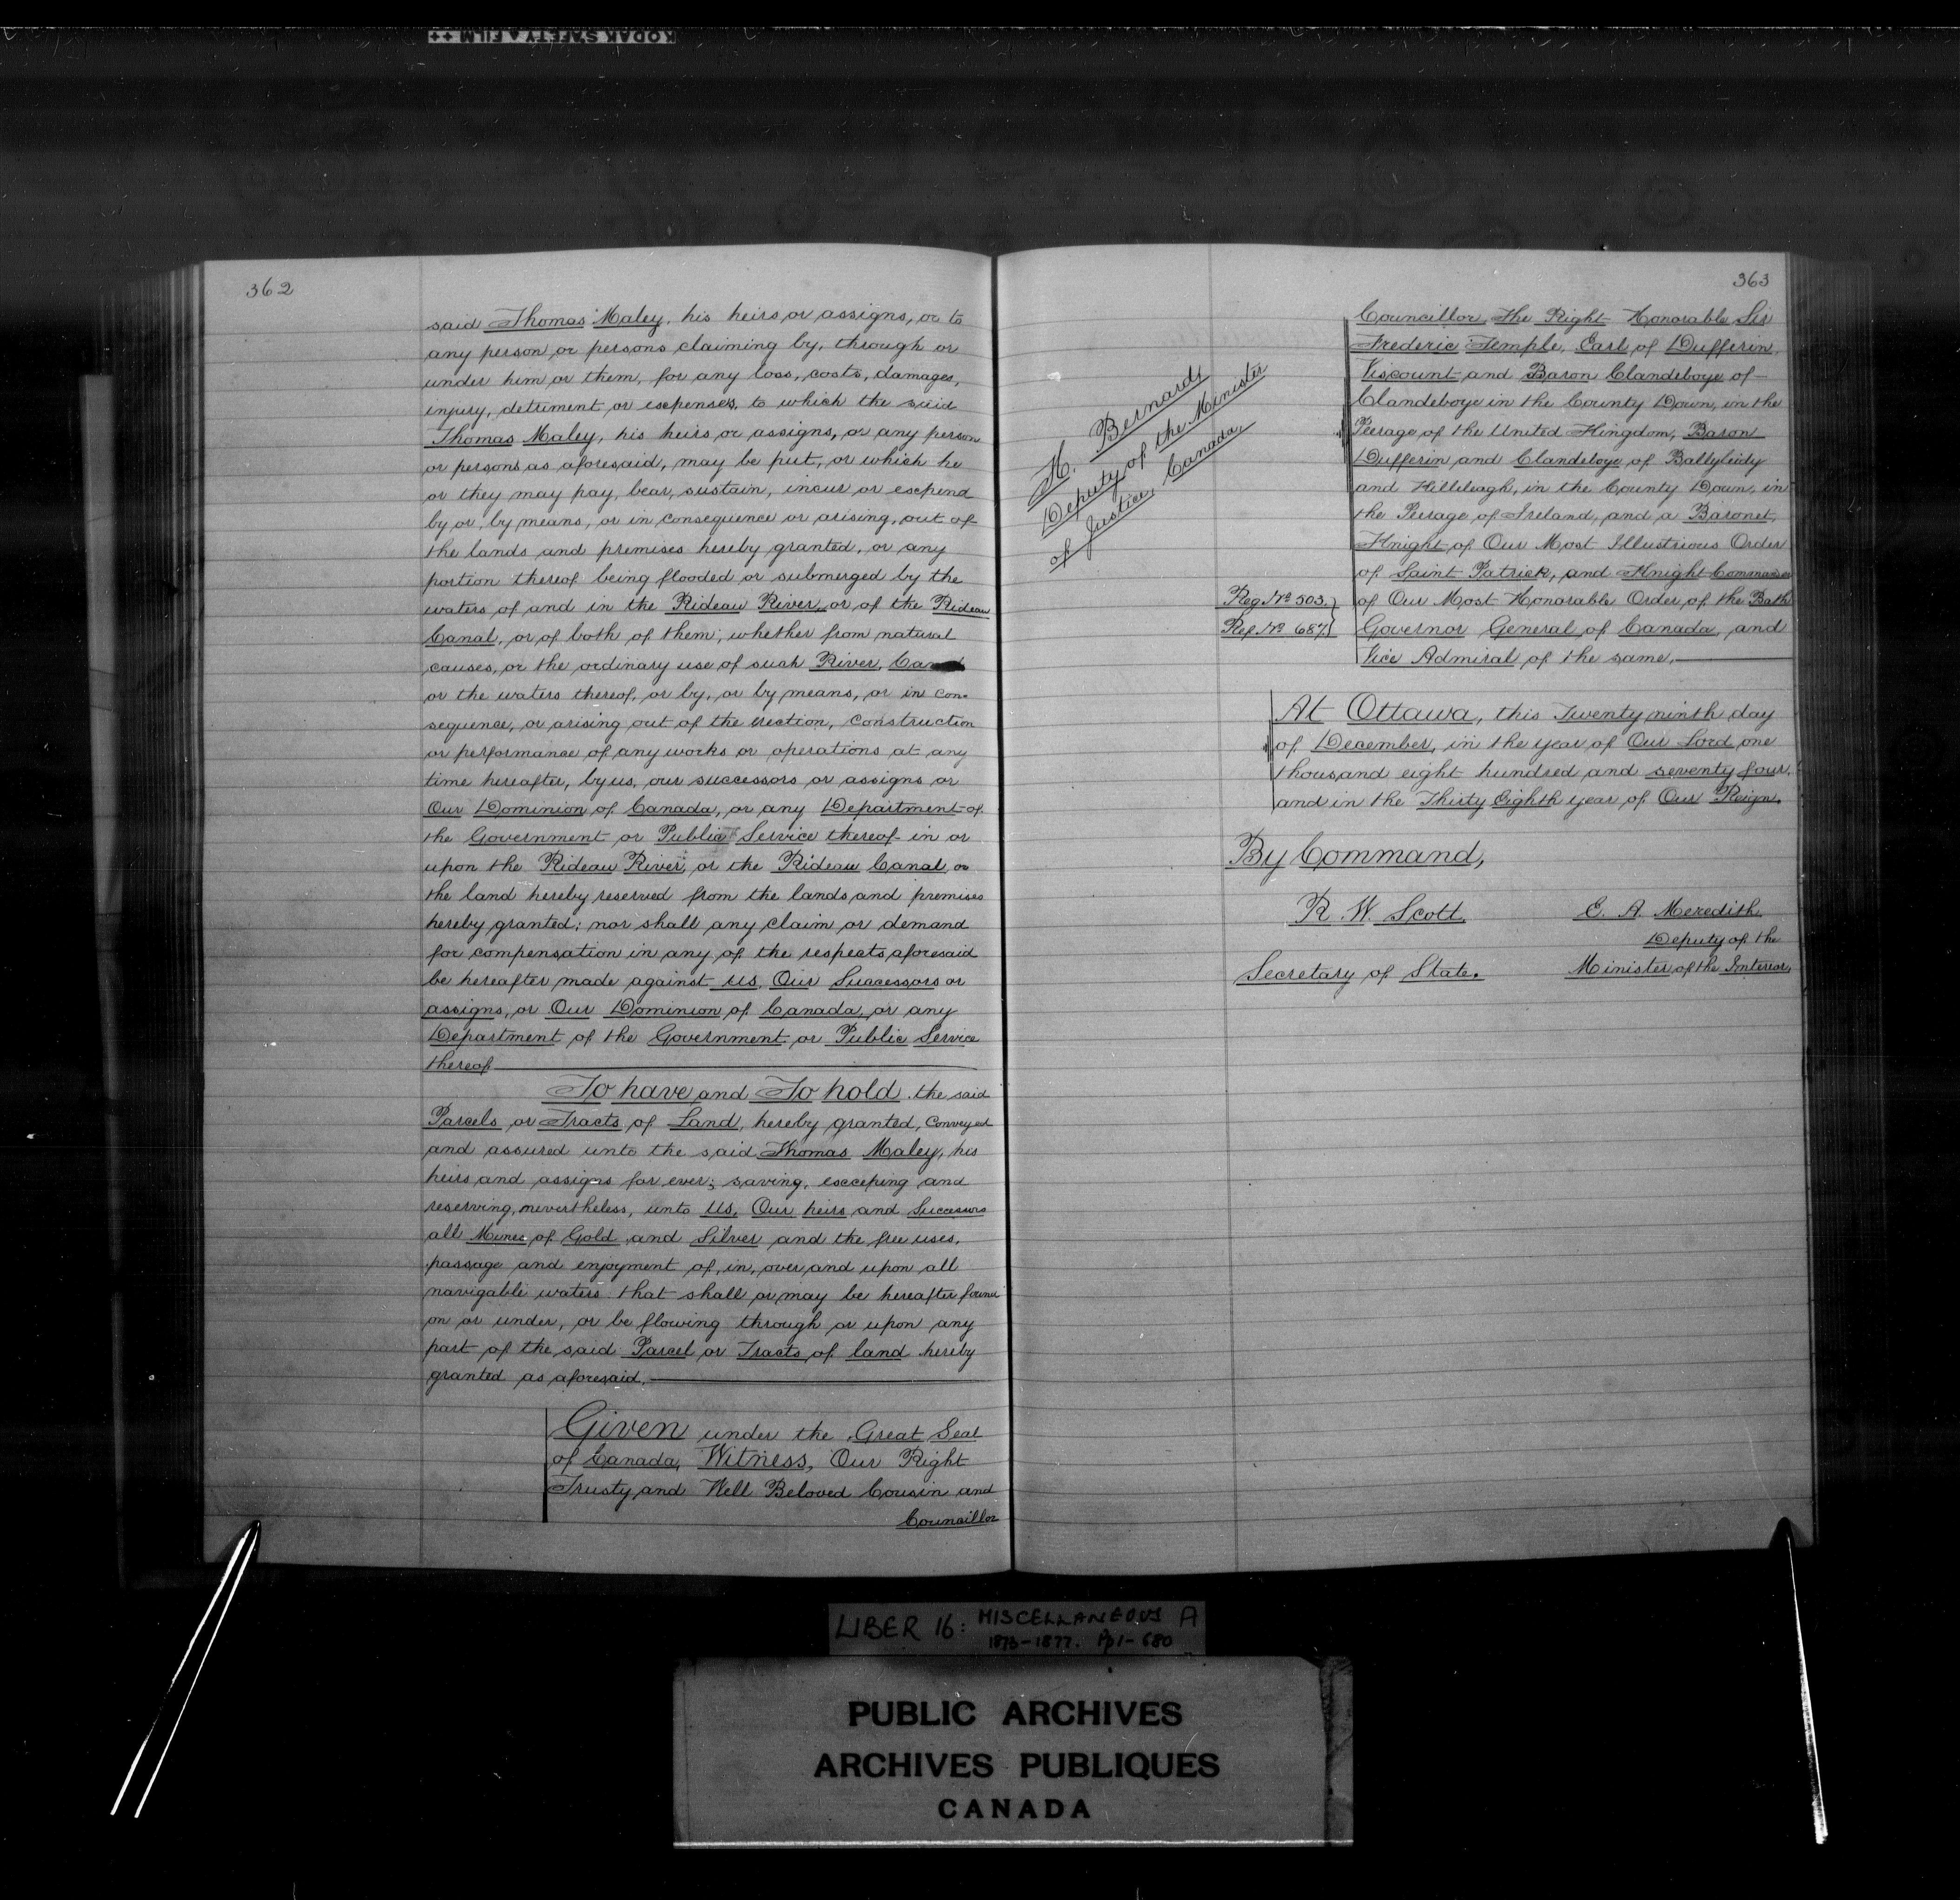 KODAK SAFETY FILM ++
362
said Thomas Maley, his heirs or assigns, or to
any person or persons claiming by, through or
under him or them, for any loss, costs, damages,
injury, detriment or expenses, to which the said
Thomas Maley, his heirs or assigns, or any person
or persons as aforesaid, may be put, or which he
or they may pay, bear, sustain, incur or expend
by or, by means, or in consequence or arising, out of
the lands and premises hereby granted, or any
portion thereof being flooded or submerged by the
waters of and in the Rideau River, or of the Rideau
Canal, or of both of them; whether from natural
causes, or the ordinary use of such River, Canal
or the waters thereof, or by, or by means, or in con-
sequence, or arising out of the erection, construction
or performance of any works or operations at any
time hereafter, by us, our successors or assigns or
Our Dominion of Canada, or any Department of
the Government or Public Service thereof in or
upon the Rideau River, or the Rideau Canal, or
the land hereby reserved from the lands and premises
hereby granted; nor shall any claim or demand
for compensation in any of the respects aforesaid
be hereafter made against us, Our Successors or
assigns, or Our Dominion of Canada, or any
Department of the Government or Public Service
thereof.
To have and To hold the said
Parcels or Tracts of Land, hereby granted, Conveyed
and assured unto the said Thomas Maley, his
heirs and assigns for ever; saving, exceping and
reserving, nevertheless, unto Us, Our heirs and Successors
all Mines of Gold and Silver and the free uses,
passage and enjoyment of, in, over and upon all
navigable waters that shall or may be hereafter found
on or under, or be flowing through or upon any
part of the said Parcel or Tracts of land hereby
granted as aforesaid.
Given under the Great Seal
of Canada, Witness, Our Right
Trusty and Well Beloved Cousin and
Councillor
363
Councillor The Right Honorable Sir
Frederic Temple, Earl of Dufferin,
Viscount and Baron Clandeboye of
Clandeboye in the County Down, in the
Peerage of the United Kingdom, Baron
Dufferin and Clandeboye of Ballyleidy
and Killeleagh, in the County Down, in
the Peerage of Ireland, and a Baronet,
Knight of Our Most Illustrious Order
of Saint Patrick, and Knight Commander
of Our Most Honorable Order of the Bath
Governor General of Canada, and
Vice Admiral of the same.
H. Bernard,
Deputy of the Minister
of Justice, Canada,
Reg. No 503.
Ref. No 687.
At Ottawa, this Twenty ninth day
of December, in the year of Our Lord one
thousand eight hundred and seventy four,
and in the Thirty Eighth year of Our Reign.
By Command,
R. W. Scott.
Secretary of State.
E. A. Meredith
Deputy of the
Minister of the Interior,
LIBER 16: MISCELLANEOUS A
1873-1877. Pp 1-680
PUBLIC ARCHIVES
ARCHIVES PUBLIQUES
CANADA